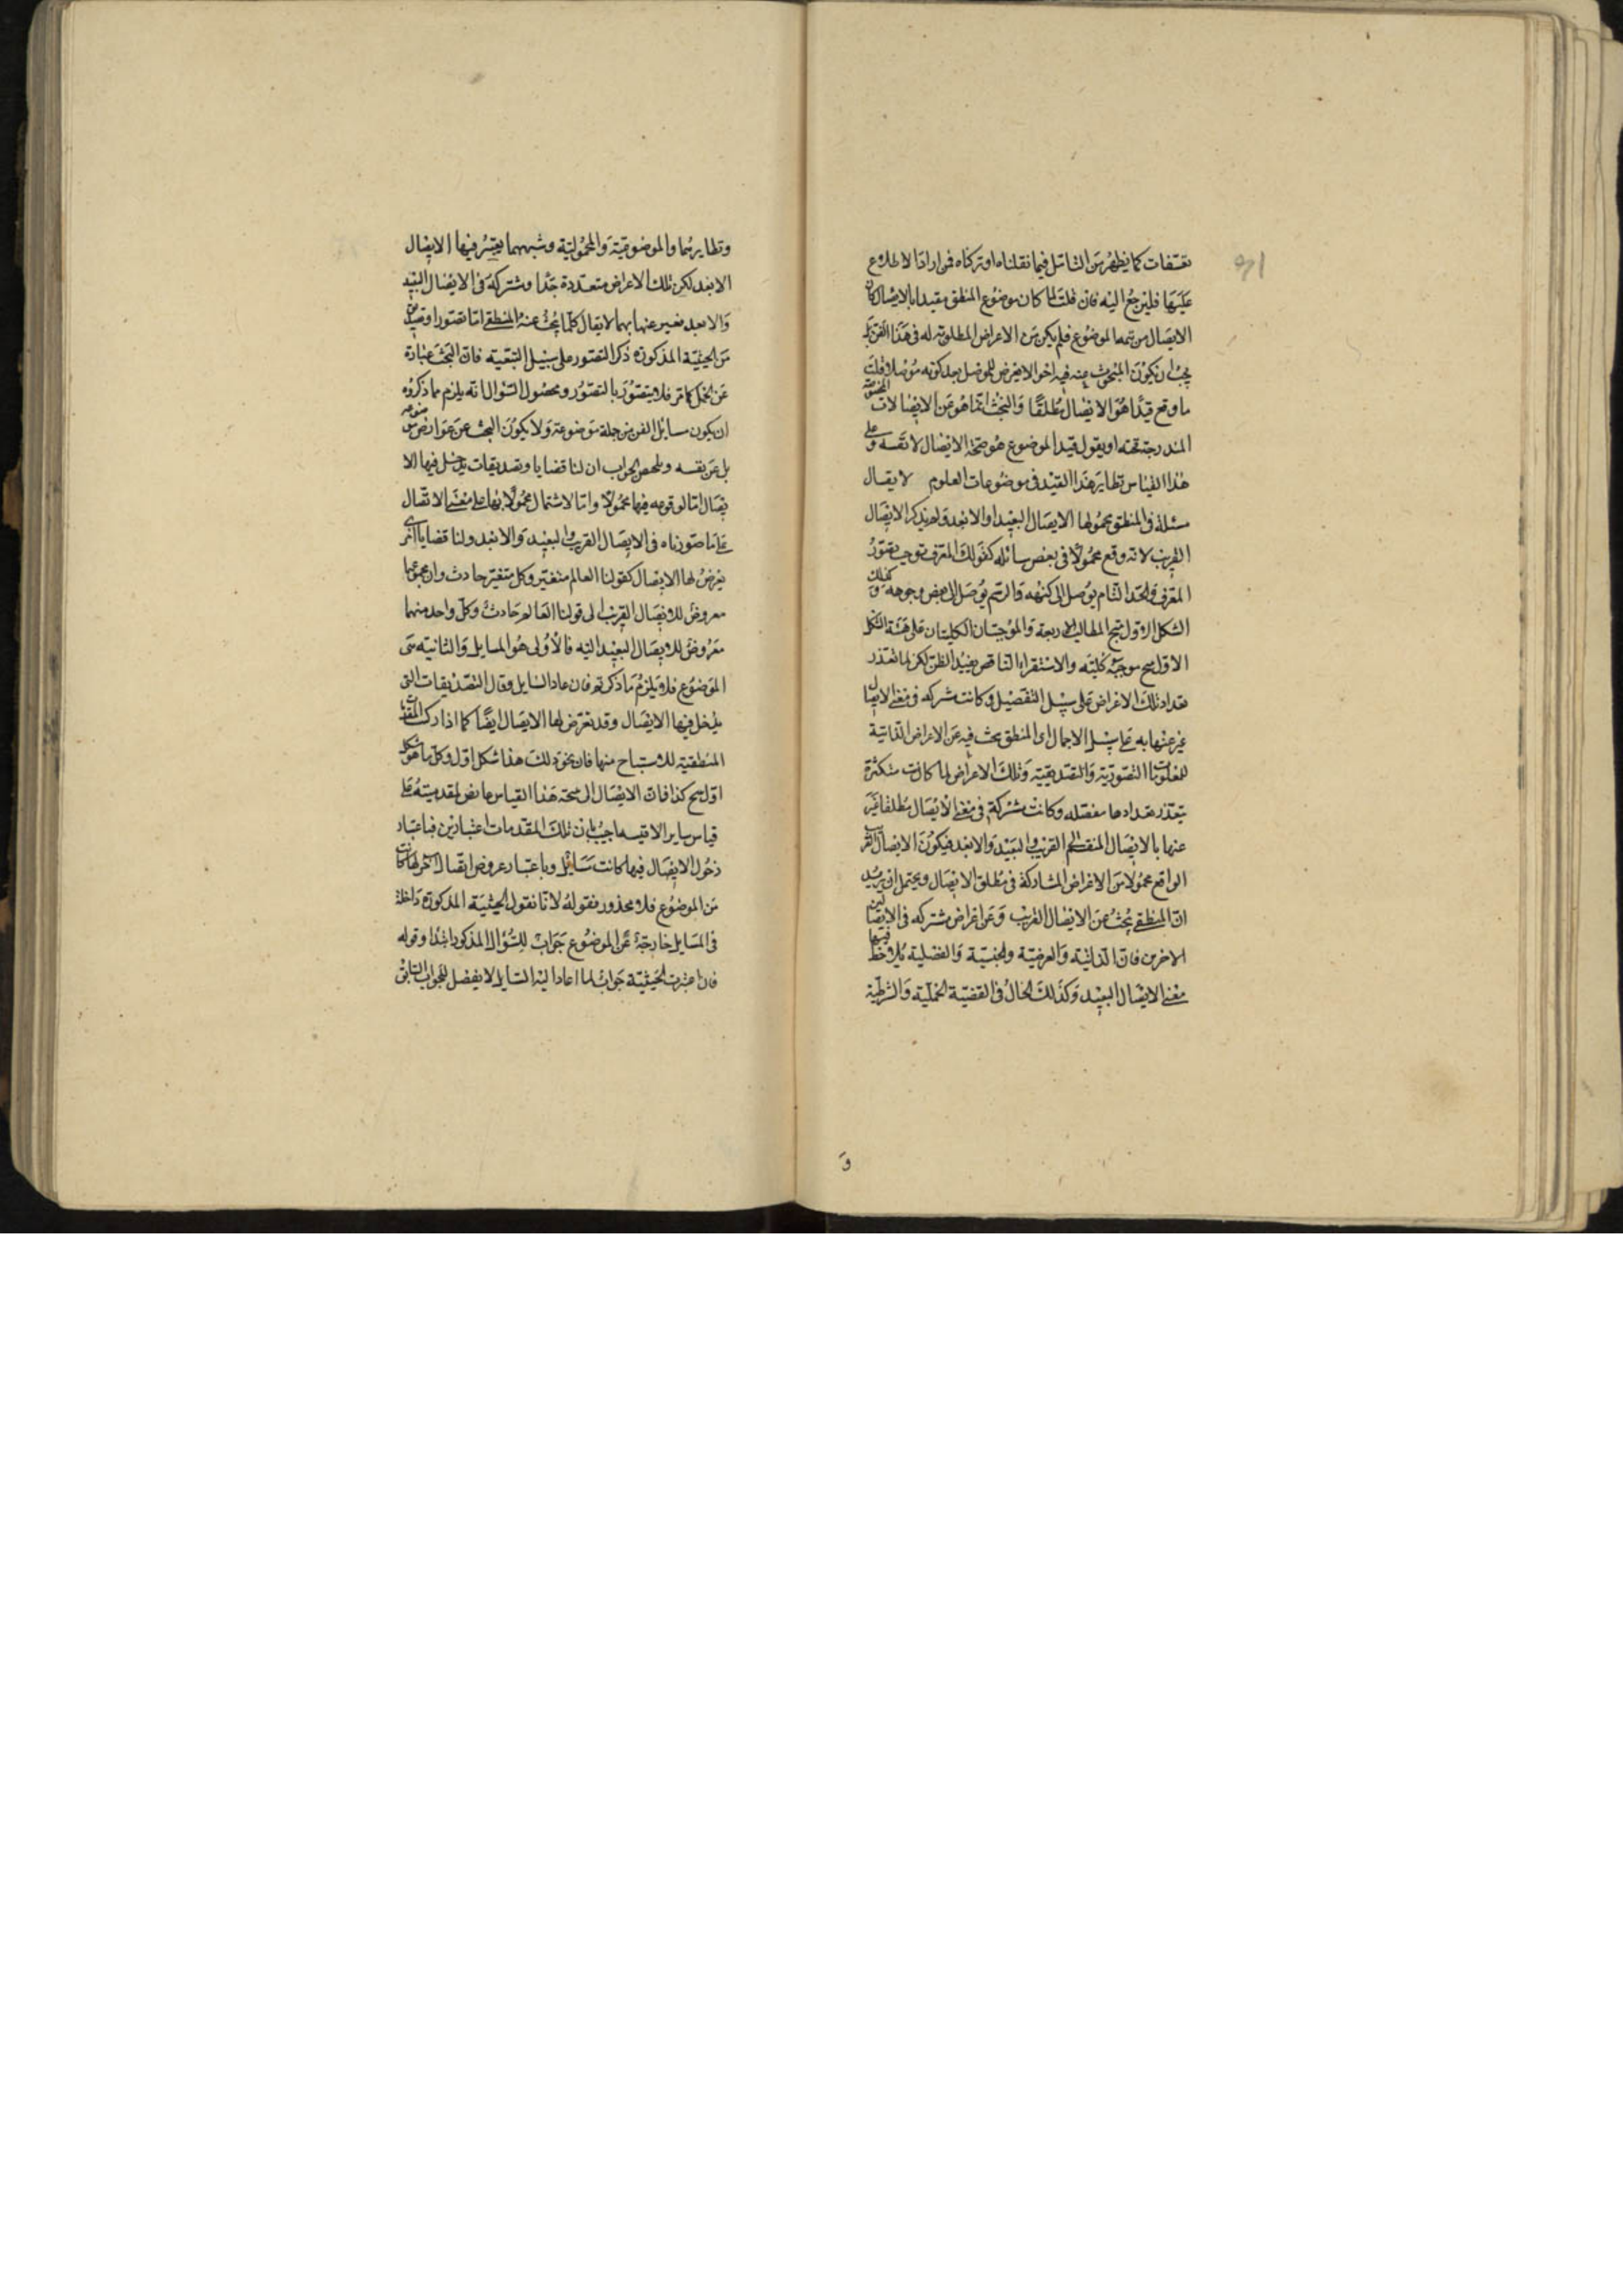 تعسفات كما يظهر من التأمل فيما نقلناه او تركناه فمن اراد الاطلاع
عليها فليرجع اليه فان قلت لما كان موضوع المنطق مقيدا بالايصال كان
الايصال من تتمة الموضوع فلم يكن من الاعراض المطلوبة له في هذا الفن بل
يجب ان يكون المبحوث عنه فيه احوالا يعرض للموصل بعد كونه موصلا قلت
ما وقع قيدا هو الايصال مطلقا والبحث انما هو عن الايصالات المخصوصة
المندرجة تحته او يقول قيد الموضوع هو صحة الايصال لا نفسه وعلى
هذا القياس نظاير هذا القيد في موضوعات العلوم لا يقال
مسئلة في المنطق محمولها الايصال البعيد او الابعد ولم يذكر الايصال
القريب لانه وقع محمولا في بعض مسائله كقولك المعرف يوجب تصور
المعرف والحد التام يوصل الى كنهه والرسم يوصل الى بعض وجوهه وكذلك
الشكل الاول ينتج المطالب الاربعة والموجبتان الكليتان على هيئة الشكل
الاول ينتج موجبة كلية والاستقراء الناقص يفيد الظن لكن لما تعذر
تعداد تلك الاعراض على سبيل التفصيل وكانت مشتركة في معنى الايصال
عبر عنها به على سبيل الاجمال اى المنطق يبحث فيه عن الاعراض الذاتية
للمعلومات التصورية والتصديقية وتلك الاعراض لما كانت متكثرة
يتعذر تعدادها مفصلة وكانت مشتركة في معنى الايصال مطلقا عبر
عنها بالايصال المنقسم الى القريب والبعيد والابعد فيكون الايصال القريب
الواقع محمولا من الاعراض المشاركة في مطلق الايصال ويحتمل ان يريد
ان المنطقي يبحث عن الايصال القريب وعن اعراض مشتركة في الايصالين
الاخرين فان الذاتية والعرضية والجنسية والفصلية يلاحظ فيها
معنى الايصال البعيد وكذلك الحال في القضية الحملية والشرطية
و
ونظايرهما والموضوعية والمحمولية وشبههما يعتبر فيها الايصال
الابعد لكن تلك الاعراض متعددة جدا ومشتركة في الايصال البعيد
والابعد فعبر عنها بهما لا يقال كلما يبحث عنه المنطقي اما تصور او تصديق
من الحيثية المذكورة ذكر التصور على سبيل التبعية فان البحث عبارة
عن الحمل كما مر فلا يتصور بالتصور ومحصول السؤال انه يلزم مما ذكروه
ان يكون مسائل الفن من جملة موضوعه ولا يكون البحث عن عوارض موضوعه
بل عن نفسه وملخص الجواب ان لنا قضايا وتصديقات يدخل فيها الا
يصال اما لوقوعه فيها محمولا واما لاشتمال محمولاتها على معنى الايصال
على ما صورناه في الايصال القريب والبعيد والابعد ولنا قضايا اخرى
يعرض لها الايصال كقولنا العالم متغير وكل متغير حادث وان مجموعهما
معروض للايصال القريب الى قولنا العالم حادث وكل واحد منهما
معروض للايصال البعيد اليه فالاولى هو المسايل والثانية هي
الموضوع فلا يلزم ما ذكرتم فان عاد السايل وقال التصديقات التي
يدخل فيها الايصال وقد يعرض لها الايصال ايضا كما اذا ركب المقدمات
المنطقية للاستنتاج منها فان نحو ذلك هذا شكل اول وكل ما هو شكل
اول ينتج كذا فان الايصال الى صحة هذا القياس عارض لمقدمتيه وعلى
قياس ساير الاقيسة اجيب بان تلك المقدمات اعتبارين فباعتبار
دخول الايصال فيها كانت مسائل وباعتبار عروض ايصال آخر لها كانت
من الموضوع فلا محذور فقوله لانا نقول الحيثية المذكورة داخلة
في المسايل خارجة عن الموضوع جواب للسؤال المذكور ابتدا وقوله
فان اعتبرت الحيثية جواب لما اعاد اليه السايل لا يفصل للجواب السابق